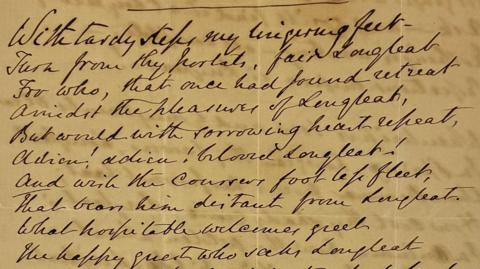 With tardy steps my lingering feet
Turn from thy portals, fair Longleat
For who, that once had found retreat
Amidst the pleasures of Longleat,
But would with sorrowing heart repeat,
Adieu! adieu! beloved Longleat!
And wish the Coursers foot less fleet,
That bears him distant from Longleat.
What hospitable welcomes greet
The happy guest who seeks Longleat